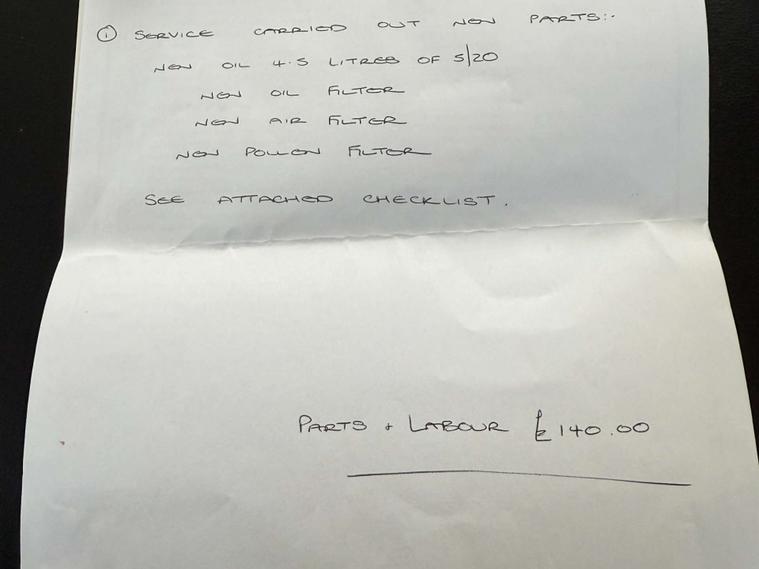 ① SERVICE CARRIED OUT NEW PARTS:-
NEW OIL 4.5 LITRES OF 5/20
NEW OIL FILTER
NEW AIR FILTER
NEW POLLEN FILTER
SEE ATTACHED CHECKLIST.
PARTS + LABOUR £140.00